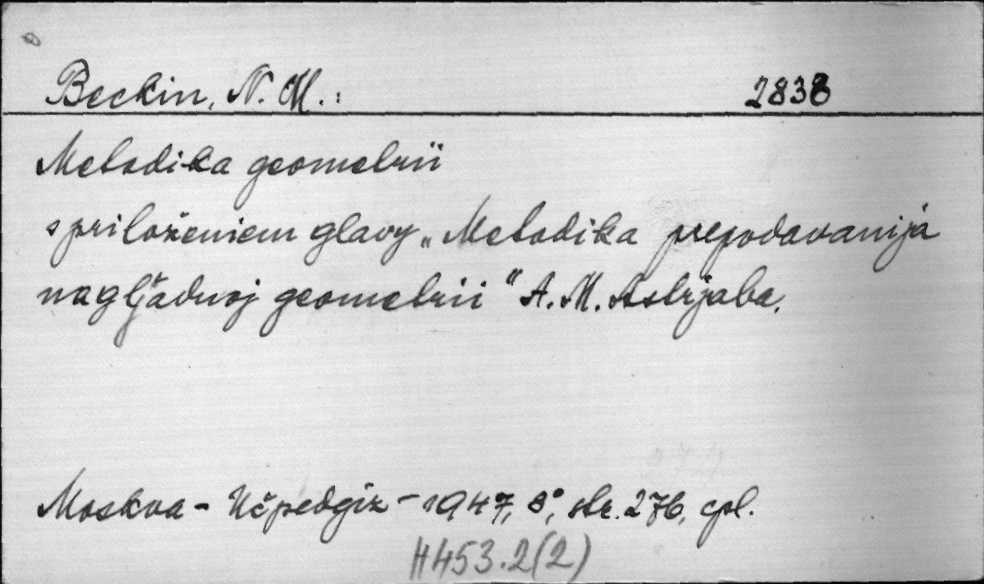 Beckin, N. M.: 2838
Metodika geometrii
s priloženiem glavy „Metodika prepodavanija
nagljadnoj geometrii" A. M. Astrjaba.
Moskva - Učpedgiz - 1947, 8°, str. 276, cpl.
H 453.2(2)